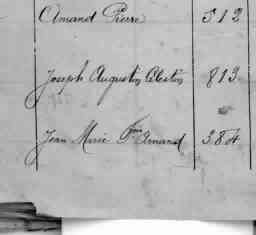 Amand Pierre 312
Joseph Augustin Célestin 813
Jean Marie Fois Amand 384